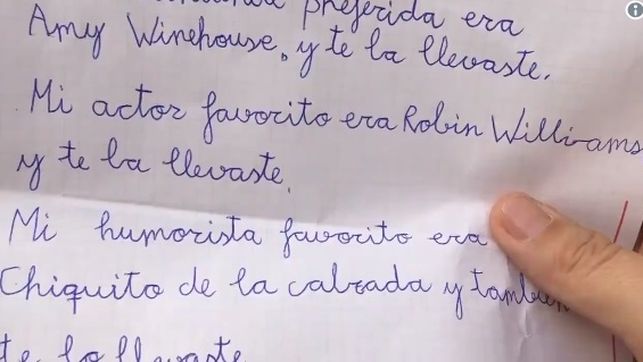 preferida era
Amy Winehouse, y te la llevaste.
Mi actor favorito era Robin Williams
y te la llevaste.
Mi humorista favorito era
Chiquito de la calzada y también
te lo llevaste